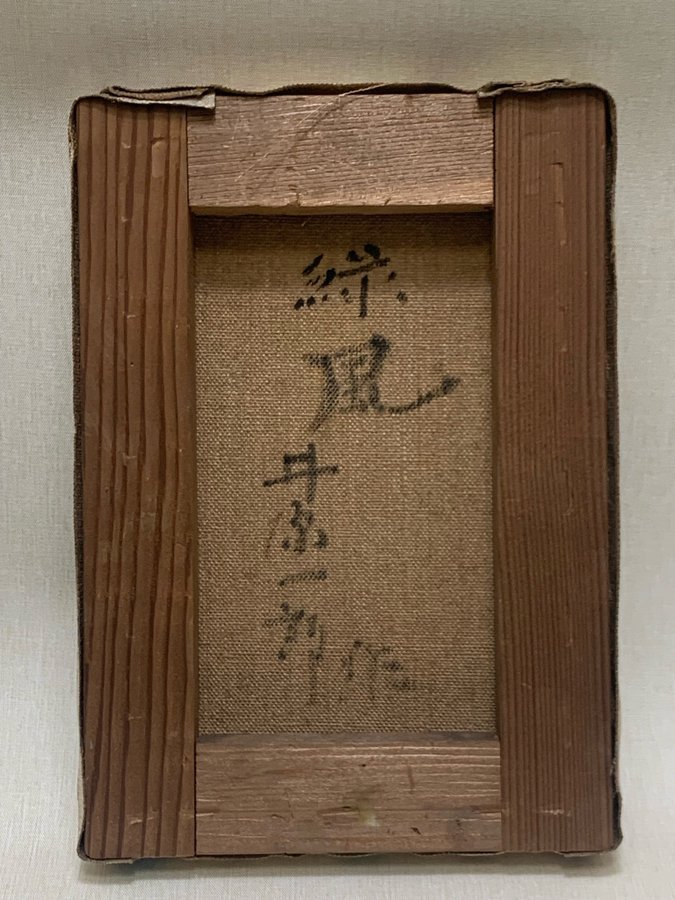 緑風
井原一郎 作